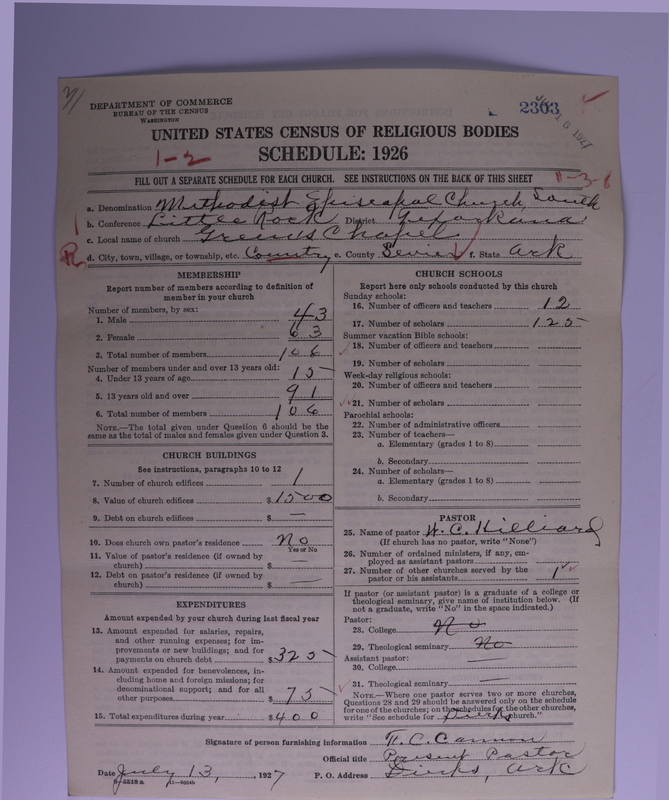 DEPARTMENT OF COMMERCE
BUREAU OF THE CENSUS
WASHINGTON
2303
UNITED STATES CENSUS OF RELIGIOUS BODIES
1-2
SCHEDULE: 1926
FILL OUT A SEPARATE SCHEDULE FOR EACH CHURCH. SEE INSTRUCTIONS ON THE BACK OF THIS SHEET
a. Denomination Methodist Episcopal Church, South
b. Conference Little Rock District
c. Local name of church Green's Chapel
d. City, town, village, or township, etc. Country e. County Sevier f. State Ark
MEMBERSHIP
Report number of members according to definition of
member in your church
Number of members, by sex:
1. Male 43
2. Female 63
3. Total number of members 106
Number of members under and over 13 years old:
4. Under 13 years of age 15
5. 13 years old and over 91
6. Total number of members 106
NOTE.—The total given under Question 6 should be
same as the total of males and females given under Question 3.
CHURCH BUILDINGS
See instructions, paragraphs 10 to 12
7. Number of church edifices 1
8. Value of church edifices $1500
9. Debt on church edifices $ —
10. Does church own pastor's residence No
Yes or No
11. Value of pastor's residence (if owned by
church) $ —
12. Debt on pastor's residence (if owned by
church) $ —
EXPENDITURES
Amount expended by your church during last fiscal year
13. Amount expended for salaries, repairs,
and other running expenses; for im-
provements or new buildings; and for
payments on church debt $325
14. Amount expended for benevolences, in-
cluding home and foreign missions; for
denominational support; and for all
other purposes $75
15. Total expenditures during year $400
CHURCH SCHOOLS
Report here only schools conducted by this church
Sunday schools:
16. Number of officers and teachers 12
17. Number of scholars 125
Summer vacation Bible schools:
18. Number of officers and teachers
19. Number of scholars
Week-day religious schools:
20. Number of officers and teachers
21. Number of scholars
Parochial schools:
22. Number of administrative officers
23. Number of teachers—
a. Elementary (grades 1 to 8)
b. Secondary
24. Number of scholars—
a. Elementary (grades 1 to 8)
b. Secondary
PASTOR
25. Name of pastor W. C. Hilliard
(If church has no pastor, write "None")
26. Number of ordained ministers, if any, em-
ployed as assistant pastors
27. Number of other churches served by the
pastor or his assistants 1
If pastor (or assistant pastor) is a graduate of a college or
theological seminary, give name of institution below. (If
not a graduate, write "No" in the space indicated.)
Pastor:
28. College No
29. Theological seminary No
Assistant pastor:
30. College —
31. Theological seminary —
NOTE.—Where one pastor serves two or more churches,
Questions 28 and 29 should be answered only on the schedule
for one of the churches; on the schedules for the other churches,
write "See schedule for Dierks church."
Signature of person furnishing information C. Cannon
Official title Present Pastor
Date July 13, 1927 P. O. Address Dierks, Ark